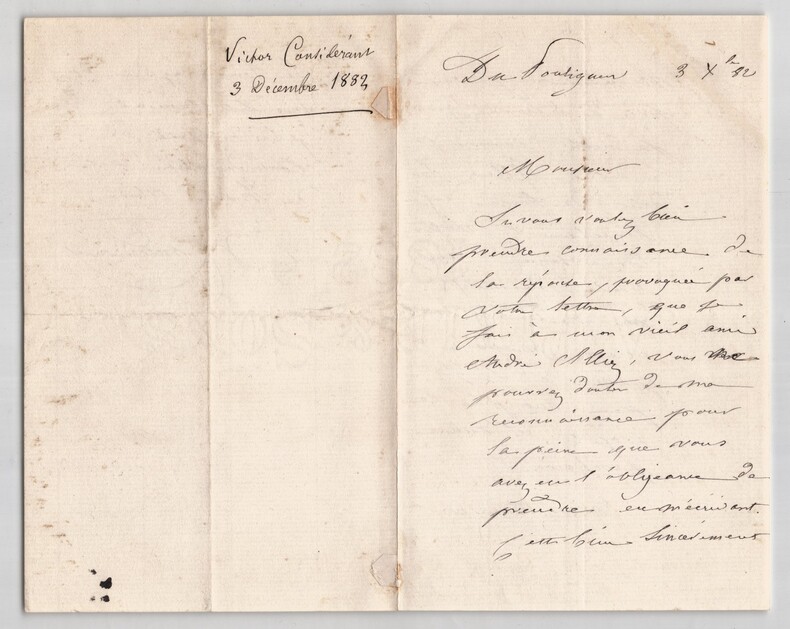 Victor Considérant
3 Décembre 1882
Du Pouliguen 3 Xbre 82
Monsieur
Si vous voulez bien
prendre connaissance de
la réponse, provoquée par
votre lettre, que je
fais à mon vieil ami
André Alliez, vous ne
pourrez douter de ma
reconnaissance pour
la peine que vous
avez eu l'obligeance de
prendre en m'écrivant.
C'est bien sincèrement